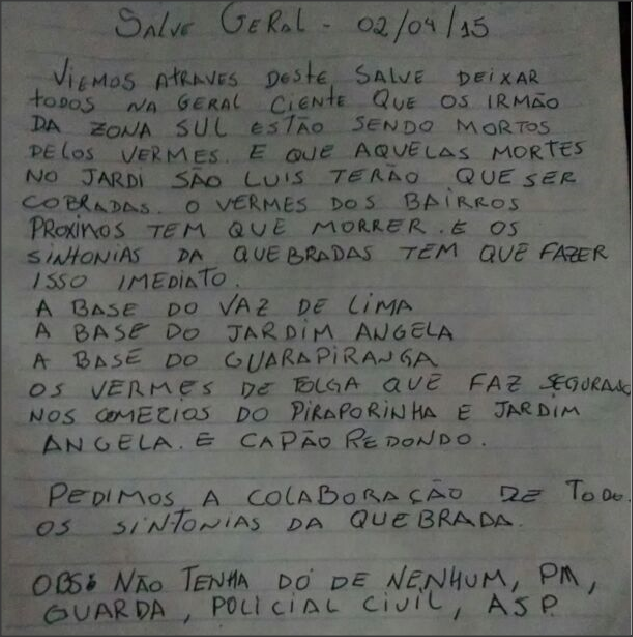 SALVE GERAL - 02/04/15
VIEMOS ATRAVES DESTE SALVE DEIXAR
TODOS NA GERAL CIENTE QUE OS IRMÃO
DA ZONA SUL ESTÃO SENDO MORTOS
PELOS VERMES. E QUE AQUELAS MORTES
NO JARDI SÃO LUIS TERÃO QUE SER
COBRADAS. O VERMES DOS BAIRROS
PROXIMOS TEM QUE MORRER. E OS
SINTONIAS DA QUEBRADAS TEM QUE FAZER
ISSO IMEDIATO.
A BASE DO VAZ DE LIMA
A BASE DO JARDIM ANGELA
A BASE DO GUARAPIRANGA
OS VERMES DE FOLGA QUE FAZ SEGURANC
NOS COMEZIOS DO PIRAPORINHA E JARDIM
ANGELA. E CAPÃO REDONDO.
PEDIMOS A COLABORAÇÃO DE TODO.
OS SINTONIAS DA QUEBRADA.
OBS: NÃO TENHA DÓ DE NENHUM, PM,
GUARDA, POLICIAL CIVIL, ASP.